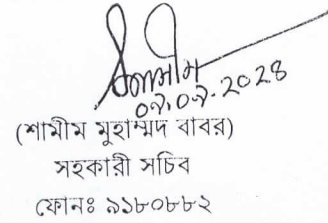 শামীম
০৭.০৭.২০২৪
(শামীম মুহাম্মদ বাবর)
সহকারী সচিব
ফোনঃ ৯১৮০৮৮২